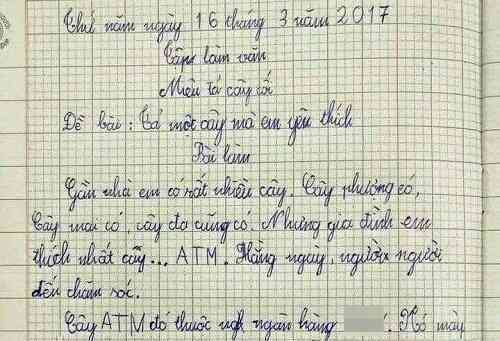 Thứ năm ngày 16 tháng 3 năm 2017
Tập làm văn
Miêu tả cây cối
Đề bài: Tả một cây mà em yêu thích
Bài làm
Gần nhà em có rất nhiều cây. Cây phượng có,
Cây mai có, cây đa cũng có. Nhưng gia đình em
thích nhất cây... ATM. Hằng ngày, người người
đến chăm sóc.
Cây ATM đó thuộc ngân hàng . Nó mày